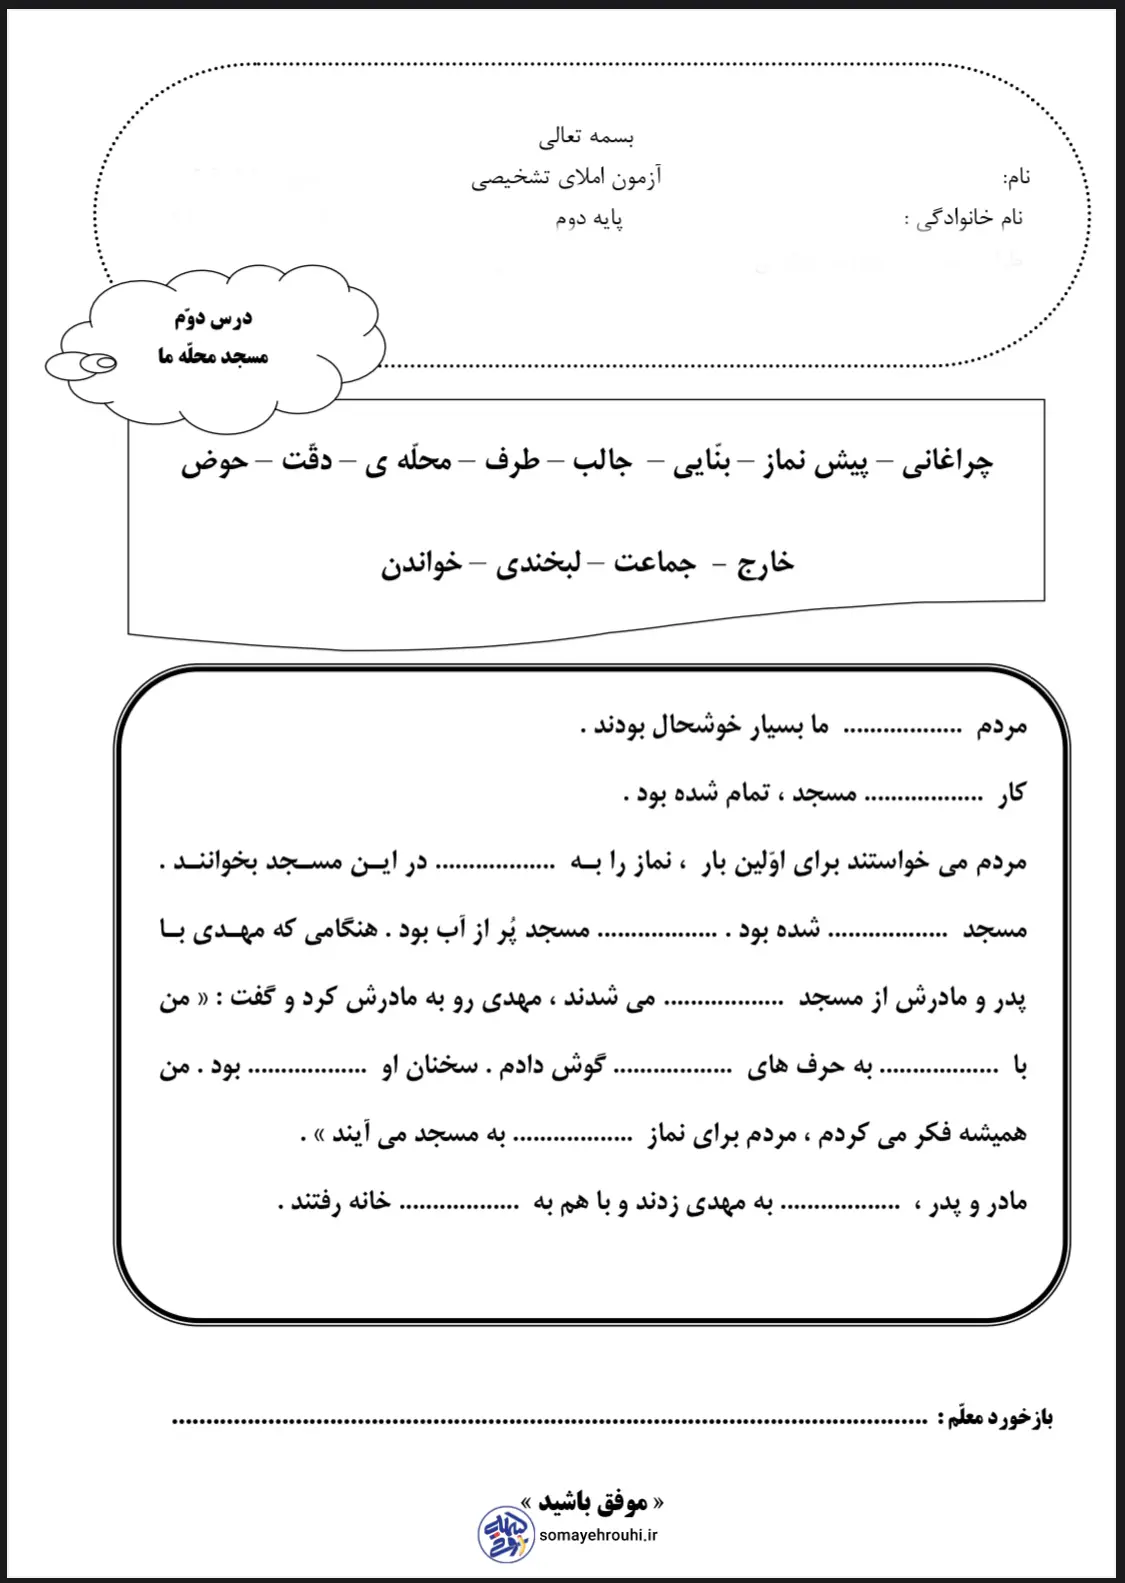 بسمه تعالی
نام:
آزمون املای تشخیصی
نام خانوادگی :
پایه دوم
درس دوّم
مسجد محلّه ما
چراغانی – پیش نماز – بنّایی – جالب – طرف – محلّه ی – دقّت – حوض
خارج – جماعت – لبخندی – خواندن
مردم .................. ما بسیار خوشحال بودند .
کار .................. مسجد ، تمام شده بود .
مردم می خواستند برای اوّلین بار ، نماز را بـه .................. در ایـن مسـجد بخواننـد .
مسجد .................. شده بود . .................. مسجد پُر از آب بود . هنگامی که مهـدی بـا
پدر و مادرش از مسجد .................. می شدند ، مهدی رو به مادرش کرد و گفت : « من
با .................. به حرف های .................. گوش دادم . سخنان او .................. بود . من
همیشه فکر می کردم ، مردم برای نماز .................. به مسجد می آیند » .
مادر و پدر ، .................. به مهدی زدند و با هم به .................. خانه رفتند .
بازخورد معلّم : ..............................................................................................................
« موفق باشید »
somayehrouhi.ir